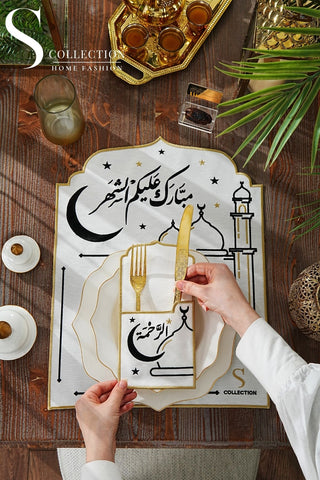 S
COLLECTION
HOME FASHION
مبارك عليكم الشهر
الرحمة
S
COLLECTION